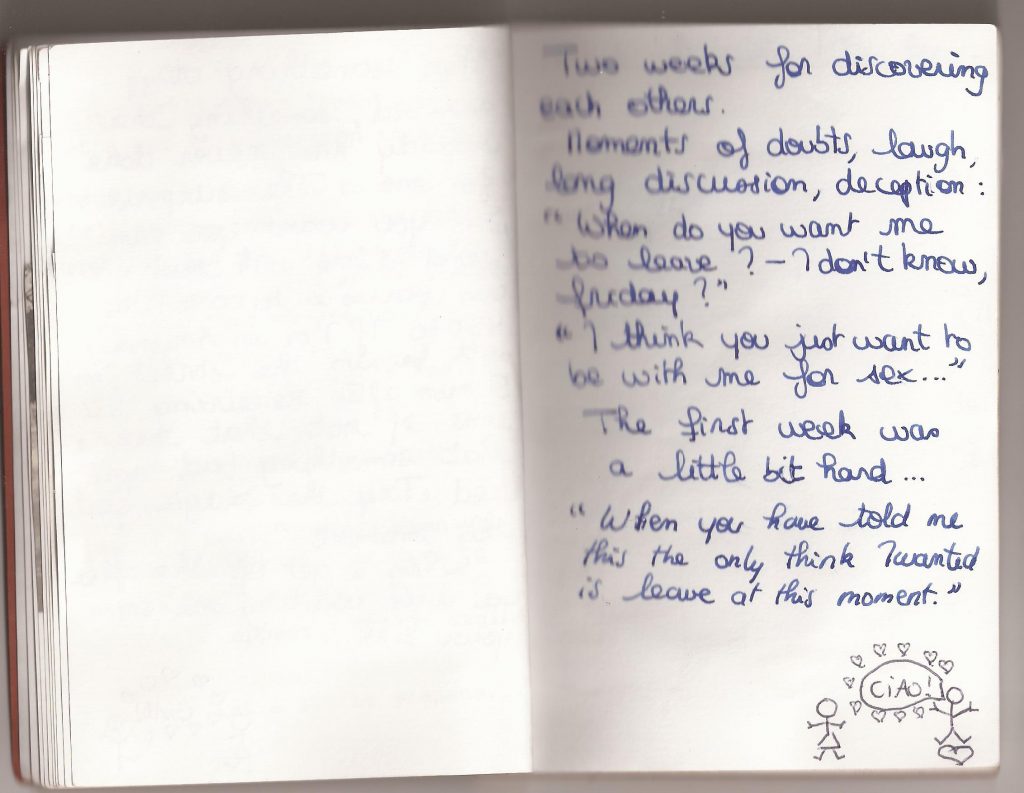 Two weeks for discovering
each others.
Moments of doubts, laugh,
long discussion, deception :
"When do you want me
to leave ? – I don't know,
friday ?"
"I think you just want to
be with me for sex..."
The first week was
a little bit hard...
"When you have told me
this the only think I wanted
is leave at this moment."
CiAO!